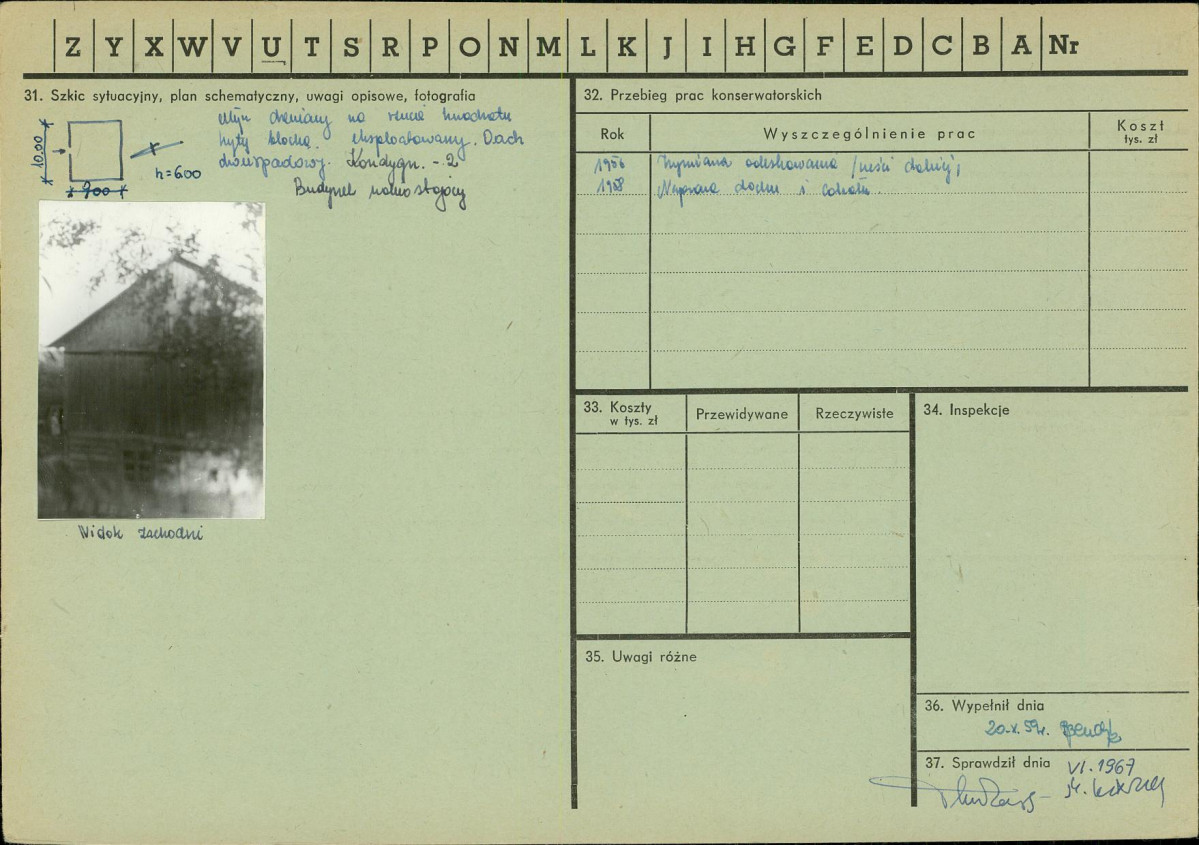 Z Y X W V U T S R P O N M L K J I H G F E D C B A Nr
31. Szkic sytuacyjny, plan schematyczny, uwagi opisowe, fotografia
Młyn drewniany na rzucie kwadratu
kryty blachą. eksploatowany. Dach
dwuspadowy. Kondygn. - 2
Budynek wolno stojący
10,00
900
h=600
Widok zachodni
32. Przebieg prac konserwatorskich
Rok
Wyszczególnienie prac
Koszt
tys. zł
1956 Wymiana odeskowania
1958 Naprawa dachu i
33. Koszty
w tys. zł
Przewidywane
Rzeczywiste
34. Inspekcje
35. Uwagi różne
36. Wypełnił dnia
20.X.59r.
37. Sprawdził dnia VI.1967